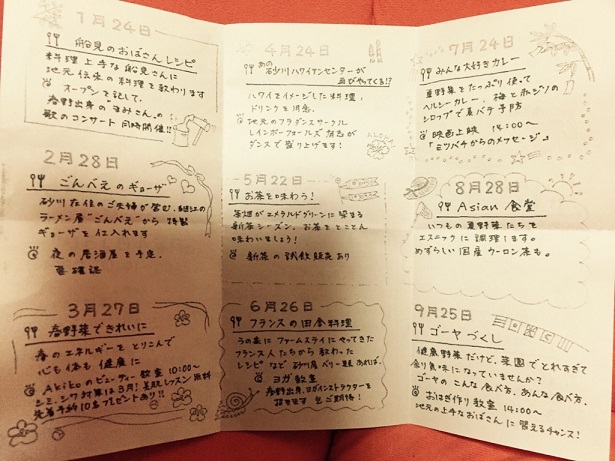 1月24日
船見のおばさんレシピ
料理上手な船見さんに
地元住来の料理を教わります
オープンを記して、
春野出身の"まみさん"の
歌のコンサート同時開催!!
2月28日
ごんべえのギョーザ
砂川在住のご夫婦が営む、
ラーメン屋"ごんべえ"から特製
ギョーザを仕入れます
夜の居酒屋を予定。
要確認
3月27日
春野菜できれいに
春のエネルギーをとりこんで
心も体も健康に
Akikoのビューティー教室 10:00〜
シミ、シワ対策は3月! 美肌レッスン 無料
先着予約10名プレゼントあり!!
4月24日
あの砂川ハワイアンセンターが
再びやってくる!?
ハワイをイメージした料理、
ドリンクを用意。
地元のフラダンスサークル
レインボーフォールズ有志が
ダンスで盛り上げます!
5月22日
お茶を味わう!
茶畑がエメラルドグリーンに染まる
新茶シーズン。お茶をとことん
味わいましょう!
新茶の試飲販売あり
6月26日
フランスの田舎料理
うの家にファームステイにやってきた
フランス人たちから教わった
レシピなど 砂川産バリー類もあれば。
ヨガ教室
春野出身、ヨガインストラクターを
はせます 乞ご期待!
7月24日
みんな大好きカレー
夏野菜をたっぷり使って
ヘルシーカレー、梅と赤ジソの
シロップで夏バテ予防
映画上映 14:00〜
「ミツバチからのメッセージ」
8月28日
Asian食堂
いつもの夏野菜たちを
エスニックに調理します。
めずらしい国産ウーロン茶も。
9月25日
ゴーヤづくし
健康野菜だけど、菜園でとれすぎて
余り気味になっていませんか?
ゴーヤのこんな食べ方、あんな食べ方。
おはぎ作り教室 14:00〜
地元の上手なおばさんに習えるチャンス!